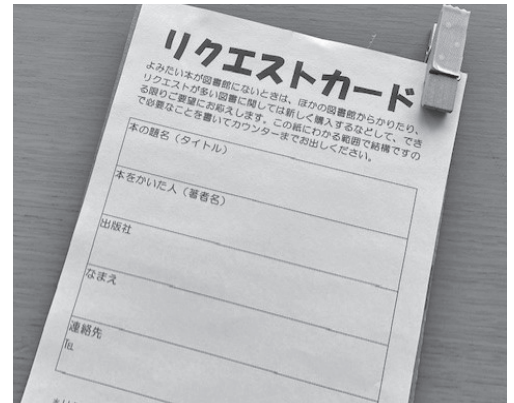 リクエストカード
よみたい本が図書館にないときは、ほかの図書館からかりたり、
リクエストが多い図書に関しては新しく購入するなどして、でき
る限りご要望にお応えします。この紙にわかる範囲で結構ですの
で必要なことを書いてカウンターまでお出しください。
本の題名（タイトル）
本をかいた人（著者名）
出版社
なまえ
連絡先
℡